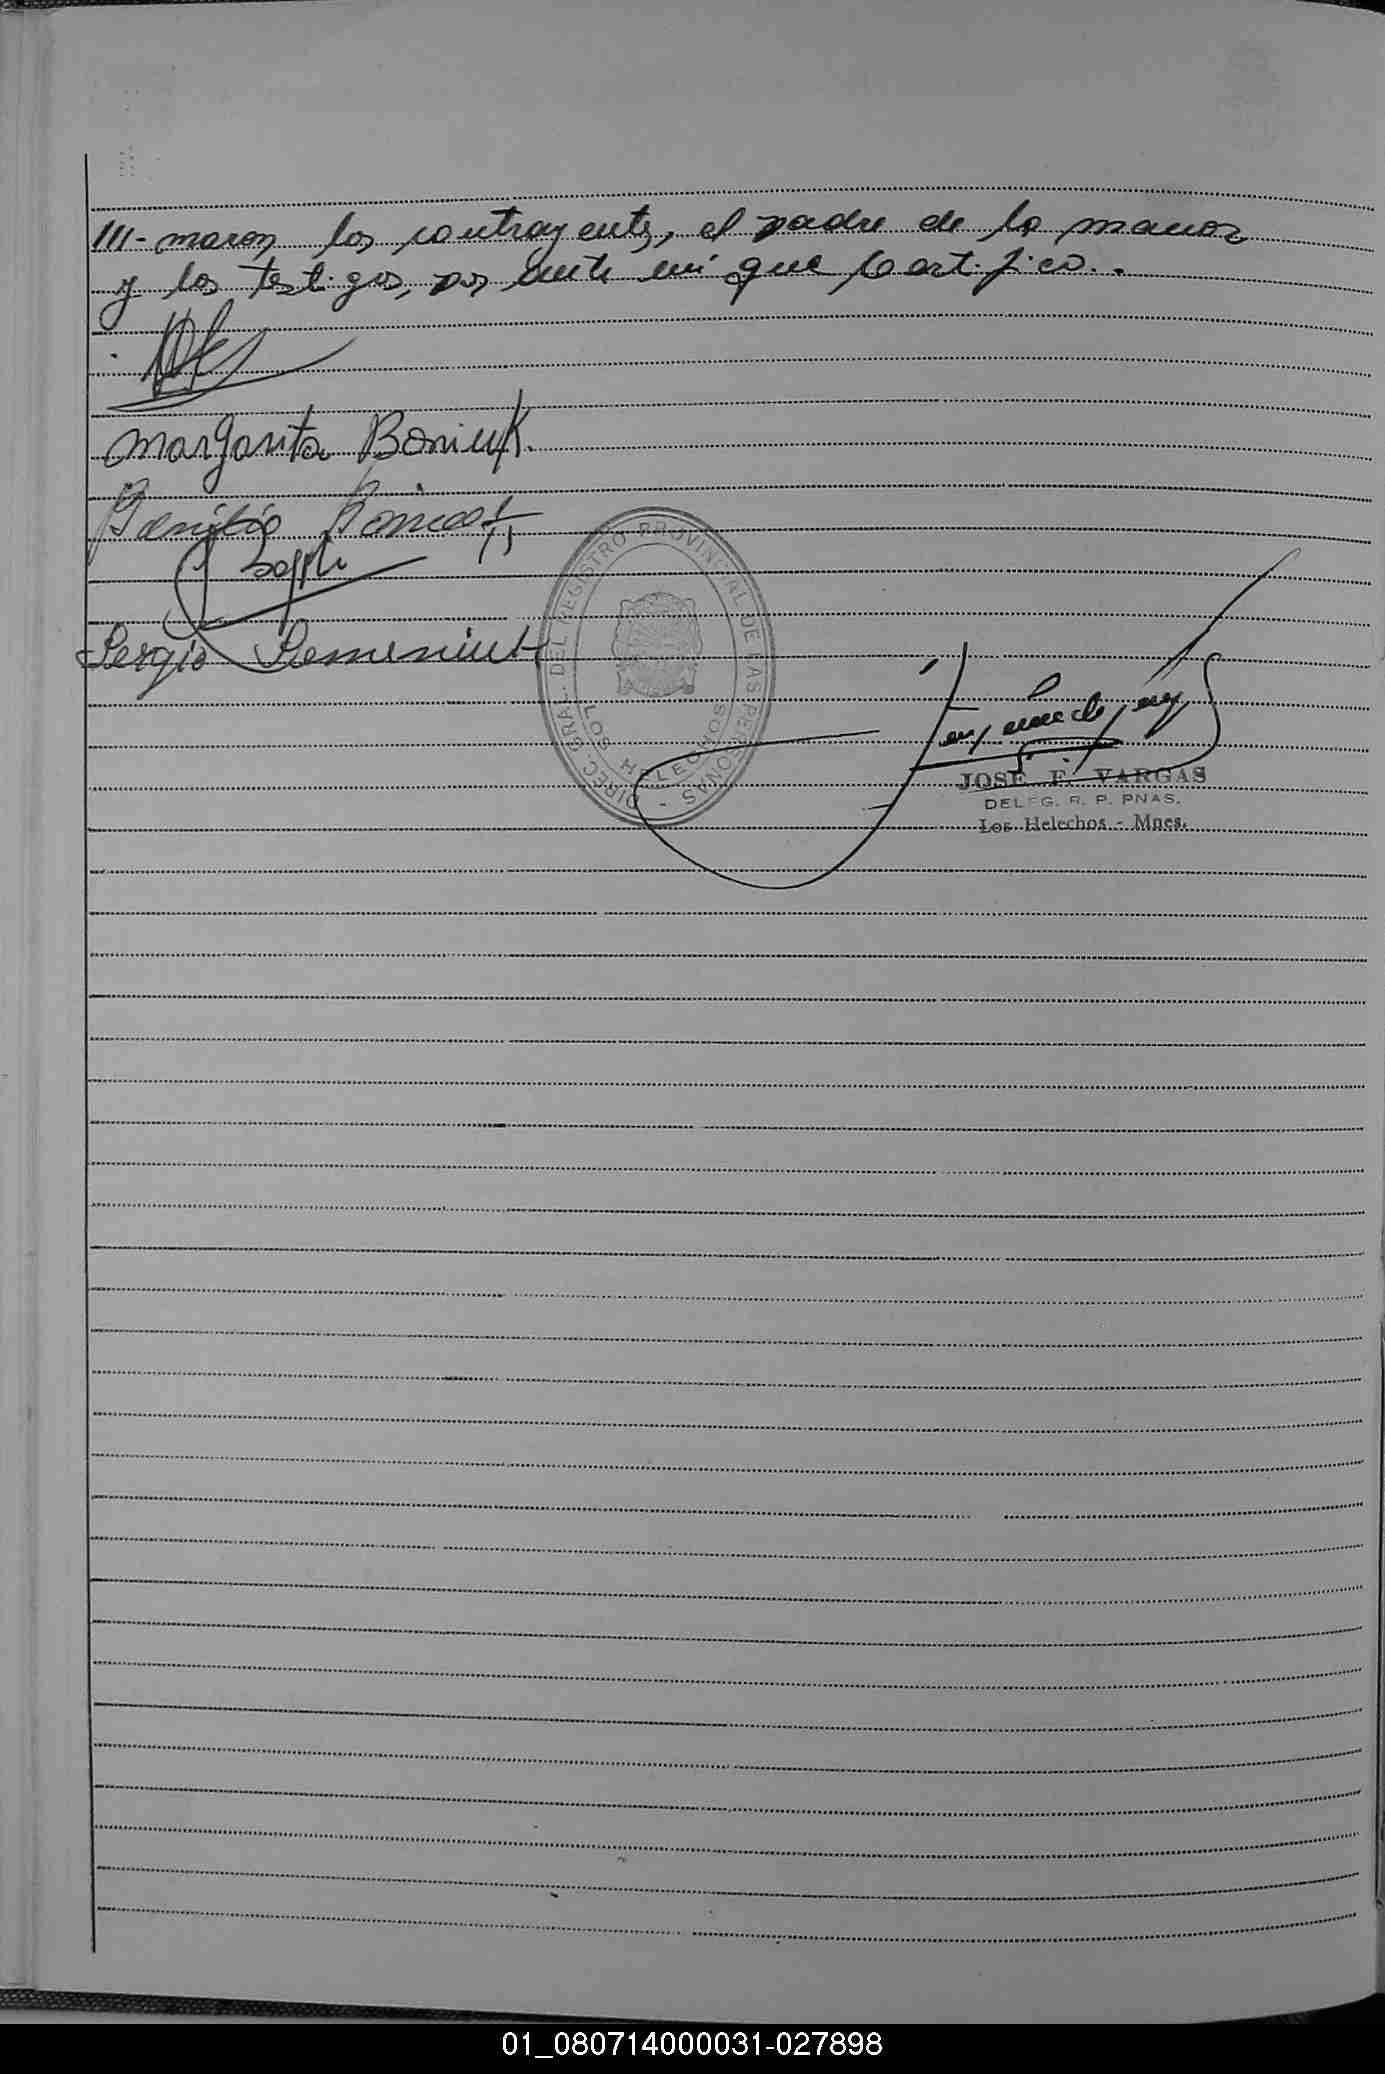 ///-maron los contrayentes, el padre de la menor
y los testigos, por ante mí que Certifico.-
Margarita Boniuk.
Basilio Boniuk
Sergio Semeniuk
DIREC. GRAL. DEL REGISTRO PROVINCIAL DE LAS PERSONAS -
LOS HELECHOS
JOSE F. VARGAS
DELEG. R. P. PNAS.
Los Helechos - Mnes.
01_080714000031-027898